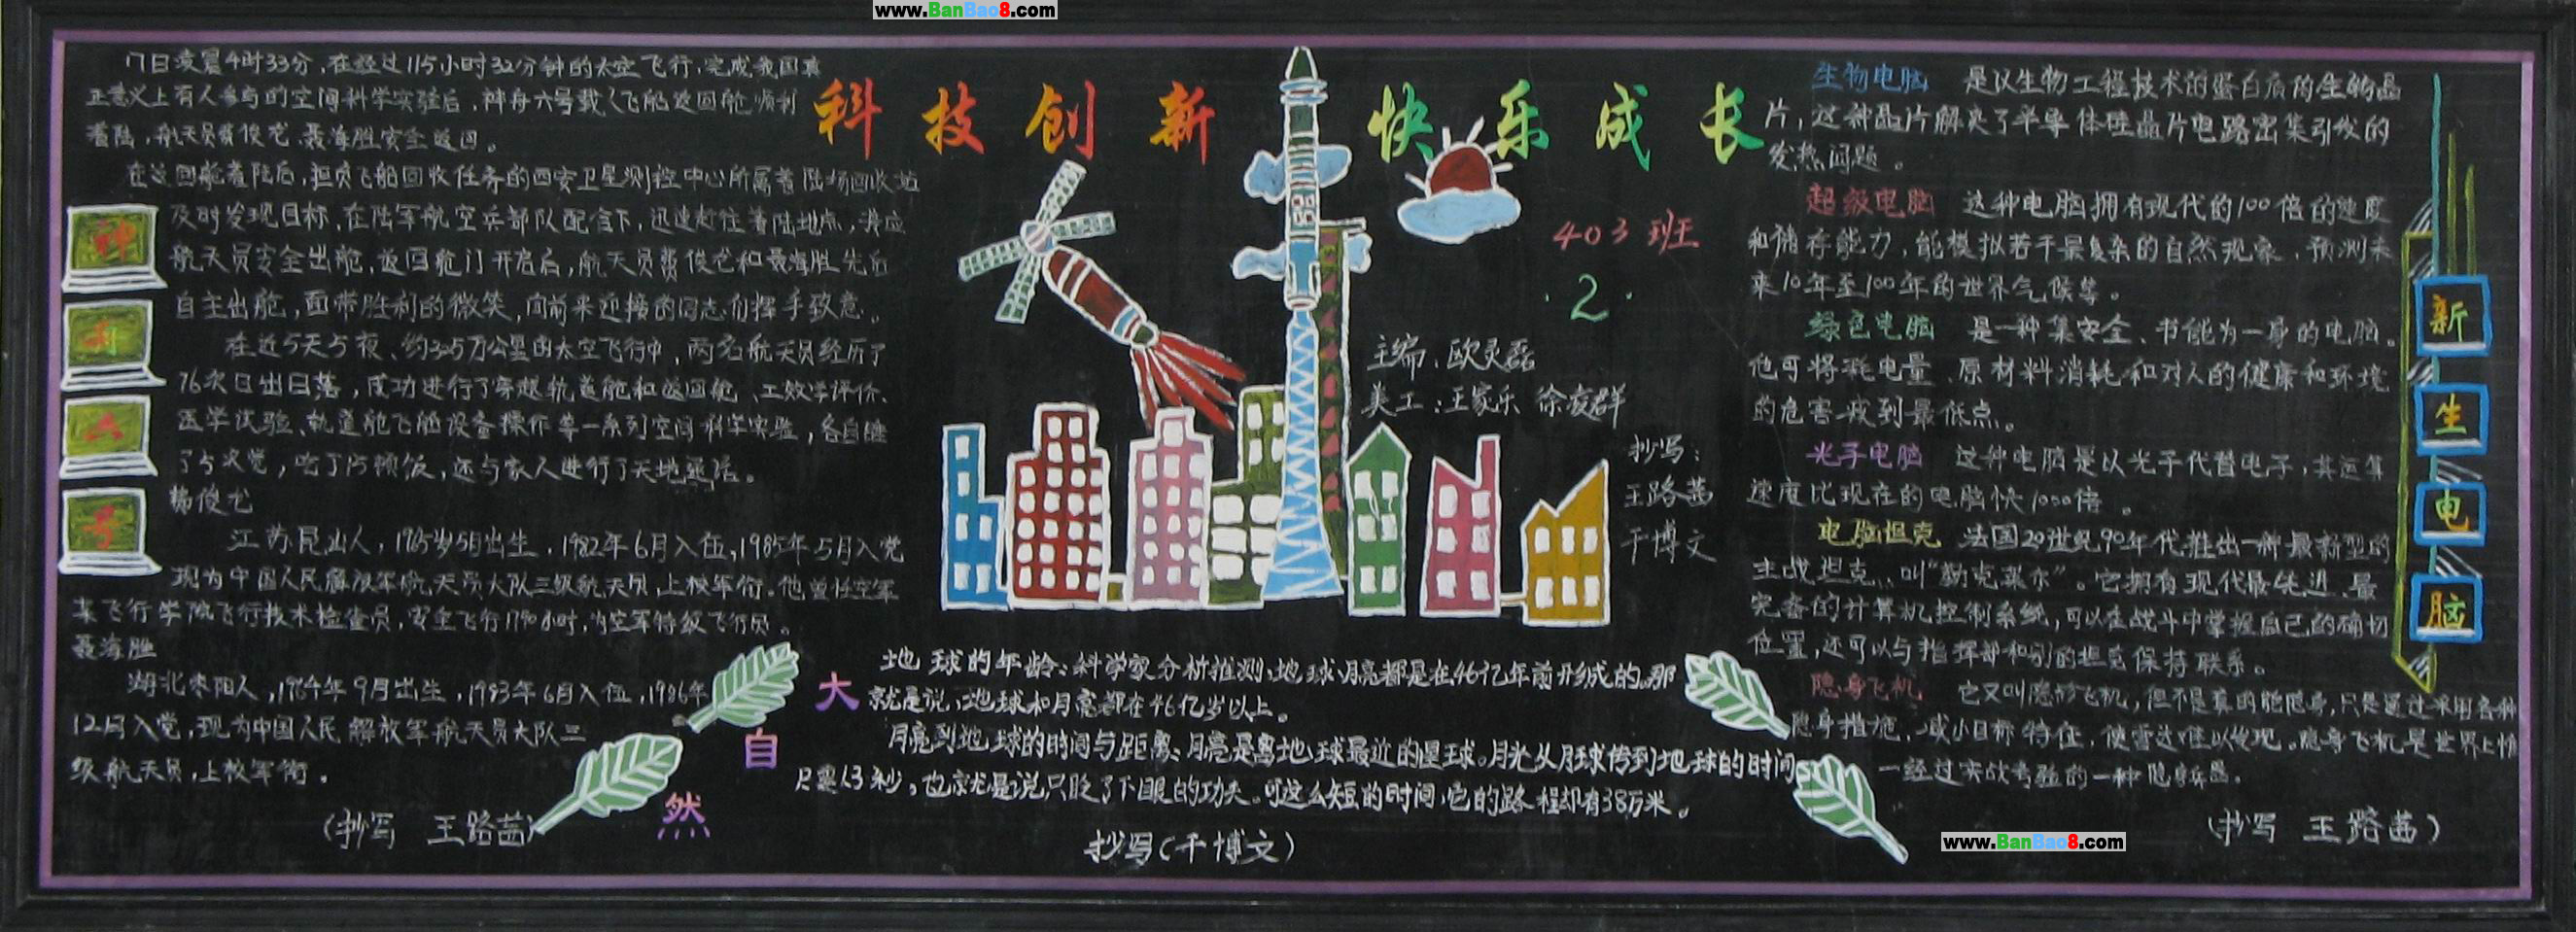 www.BanBao8.com
科技创新 快乐成长
403班
2
主编:欧灵磊
美工:王家乐 徐凌群
抄写:
王路茜
干博文
神
舟
六
号
17日凌晨4时33分,在经过115小时32分钟的太空飞行,完成我国真
正意义上有人参与的空间科学实验后,神舟六号载人飞船返回舱顺利
着陆,航天员费俊龙、聂海胜安全返回。
在返回舱着陆后,担负飞船回收任务的西安卫星测控中心所属着陆场回收站
及时发现目标,在陆军航空兵部队配合下,迅速赶往着陆地点,
航天员安全出舱,返回舱门开启后,航天员费俊龙和聂海胜先后
自主出舱,面带胜利的微笑,向前来迎接的同志们挥手致意。
在近5天5夜、约325万公里的太空飞行中,两名航天员经历了
76次日出日落,成功进行了穿越轨道舱和返回舱、工效学评价、
医学试验、轨道舱飞船设备操作等一系列空间科学实验,各自睡
了5次觉,吃了15顿饭,还与家人进行了天地通话。
费俊龙
江苏昆山人,1965岁5月出生,1982年6月入伍,1985年5月入党
现为中国人民解放军航天员大队三级航天员,上校军衔。他曾任空军
某飞行学院飞行技术检查员,安全飞行1790小时,为空军特级飞行员。
聂海胜
湖北枣阳人,1964年9月出生,1983年6月入伍,1986年
12月入党,现为中国人民解放军航天员大队三
级航天员,上校军衔。
(抄写 王路茜)
大
自
然
地球的年龄:科学家分析推测,地球、月亮都是在46亿年前形成的。那
就是说,地球和月亮都在46亿岁以上。
月亮到地球的时间与距离:月亮是离地球最近的星球。月光从月球传到地球的时间
只要1.3秒,也就是说只眨了下眼的功夫。可这么短的时间,它的路程却有38万米。
抄写(干博文)
生物电脑 是以生物工程技术的蛋白质的生物晶
片,这种晶片解决了半导体硅晶片电路密集引发的
发热问题。
超级电脑 这种电脑拥有现代的100倍的速度
和储存能力,能模拟若干最复杂的自然现象,预测未
来10年至100年的世界气候等。
绿色电脑 是一种集安全、节能为一身的电脑。
他可将耗电量、原材料消耗和对人的健康和环境
的危害减到最低点。
光子电脑 这种电脑是以光子代替电子,其运算
速度比现在的电脑快1000倍。
电脑坦克 法国20世纪90年代推出一种最新型的
主战坦克,叫“勒克莱尔”。它拥有现代最先进、最
完备的计算机控制系统,可以在战斗中掌握自己的确切
位置,还可以与指挥部和别的坦克保持联系。
隐身飞机 它又叫隐形飞机,但不是真的能隐身,只是通过采用各种
隐身措施,减小目标特征,使雷达难以发现。隐身飞机是世界上惟
一经过实战考验的一种隐身兵器。
(抄写 王路茜)
新
生
电
脑
www.BanBao8.com